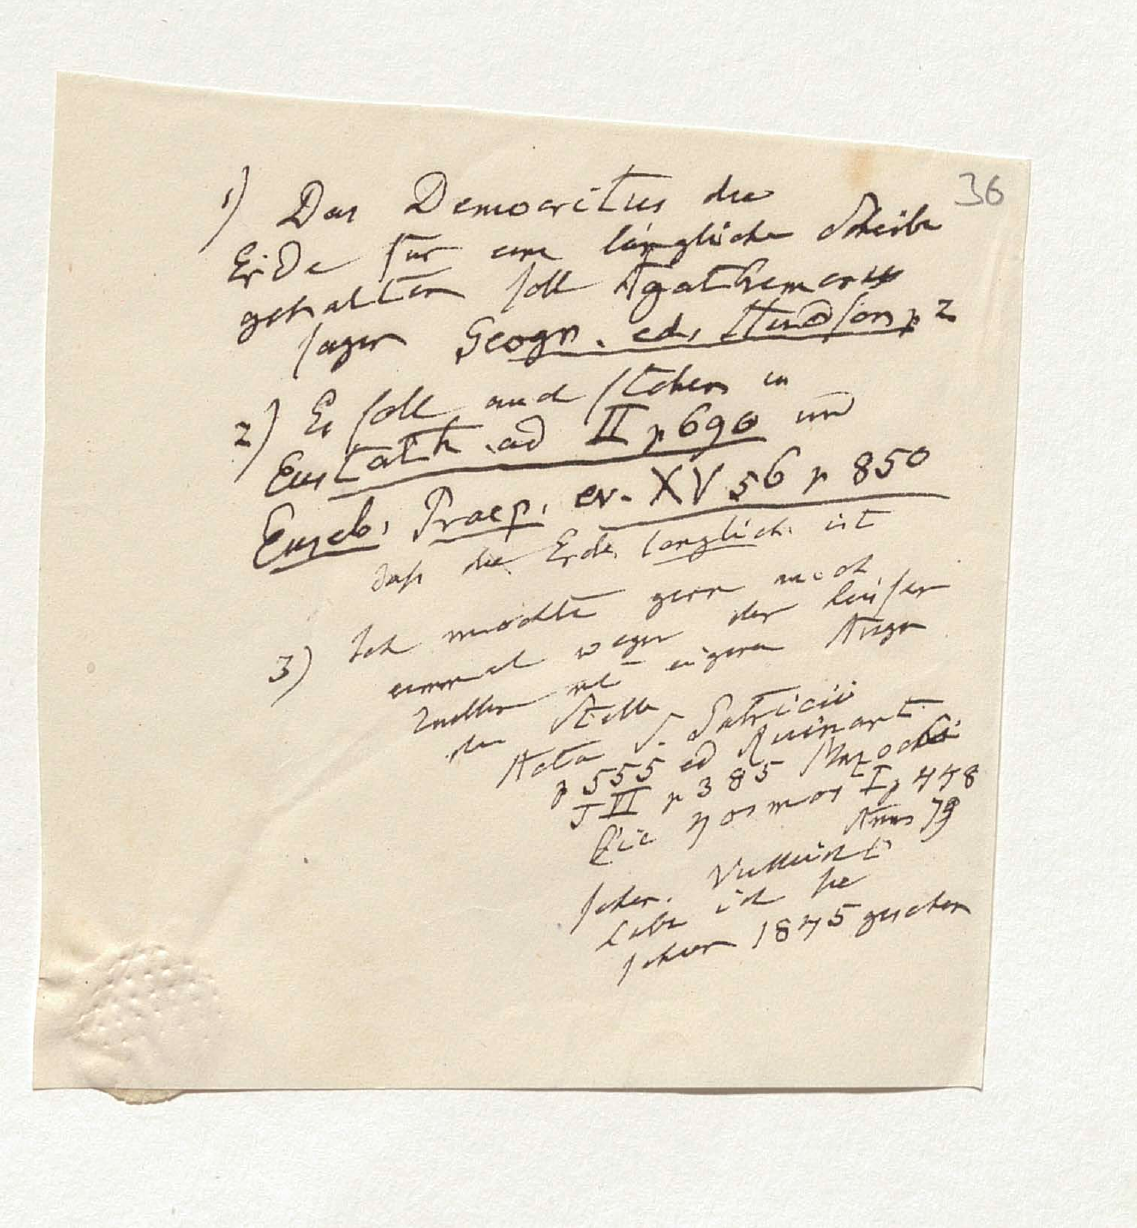 36
1) Das Democritus die
Erde für eine längliche Scheibe
gehalten soll Agathemerus
sagen Geogr. ed. Hudson p 2
2) Es soll auch stehen in
Eustath. ad Il p 690 und
Euseb. Praep. ev. XV 56 p 850
daß die Erde länglich ist
3) Ich möchte gern noch
einmal wegen der heißen
Quellen mit eigenen Augen
die Stelle
Acta S. Patricii
p 555 ed Ruinart
T II p 385 Mazochi
Kosmos I p 448
Anm 79
sehen. Vielleicht
habe ich sie
schon 1845 gesehen